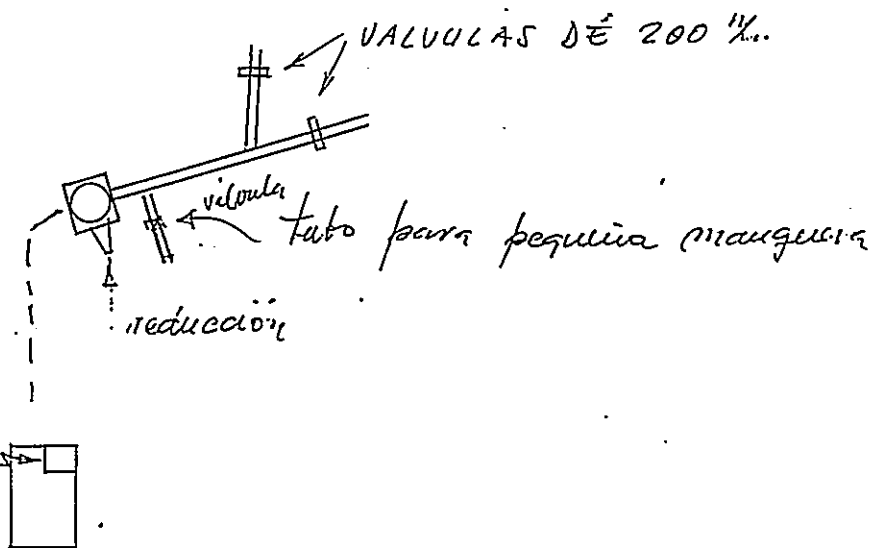 VALVULAS DE 200 m/m.
válvula
tubo para pequeña manguera
reducción